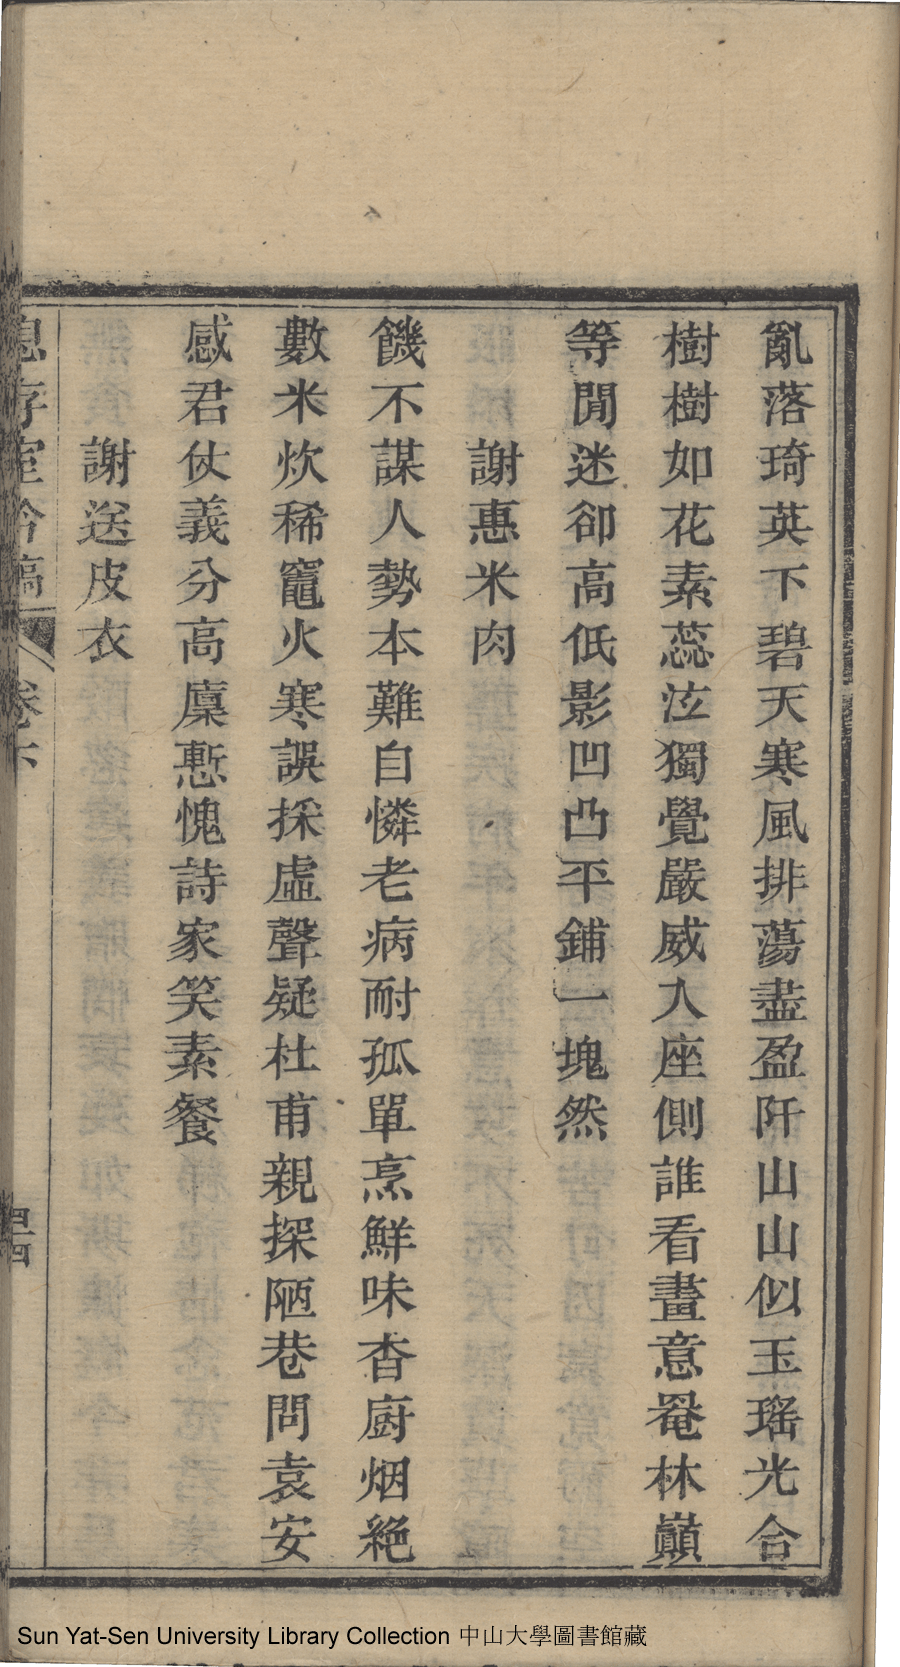 亂落琦英下碧天寒風排蕩盡盈阡山山似玉瑤光合
樹樹如花素蕊泣獨覺嚴威入座側誰看畫意罨林巔
等閒迷卻高低影凹凸平鋪一塊然
謝惠米肉
饑不謀人勢本難自憐老病耐孤單烹鮮味杳厨烟絶
數米炊稀竈火寒誤採虛聲疑杜甫親探陋巷問袁安
感君仗義分高廩慙愧詩家笑素餐
謝送皮衣
息存室吟稿 卷六 四十四
Sun Yat-Sen University Library Collection 中山大學圖書館藏